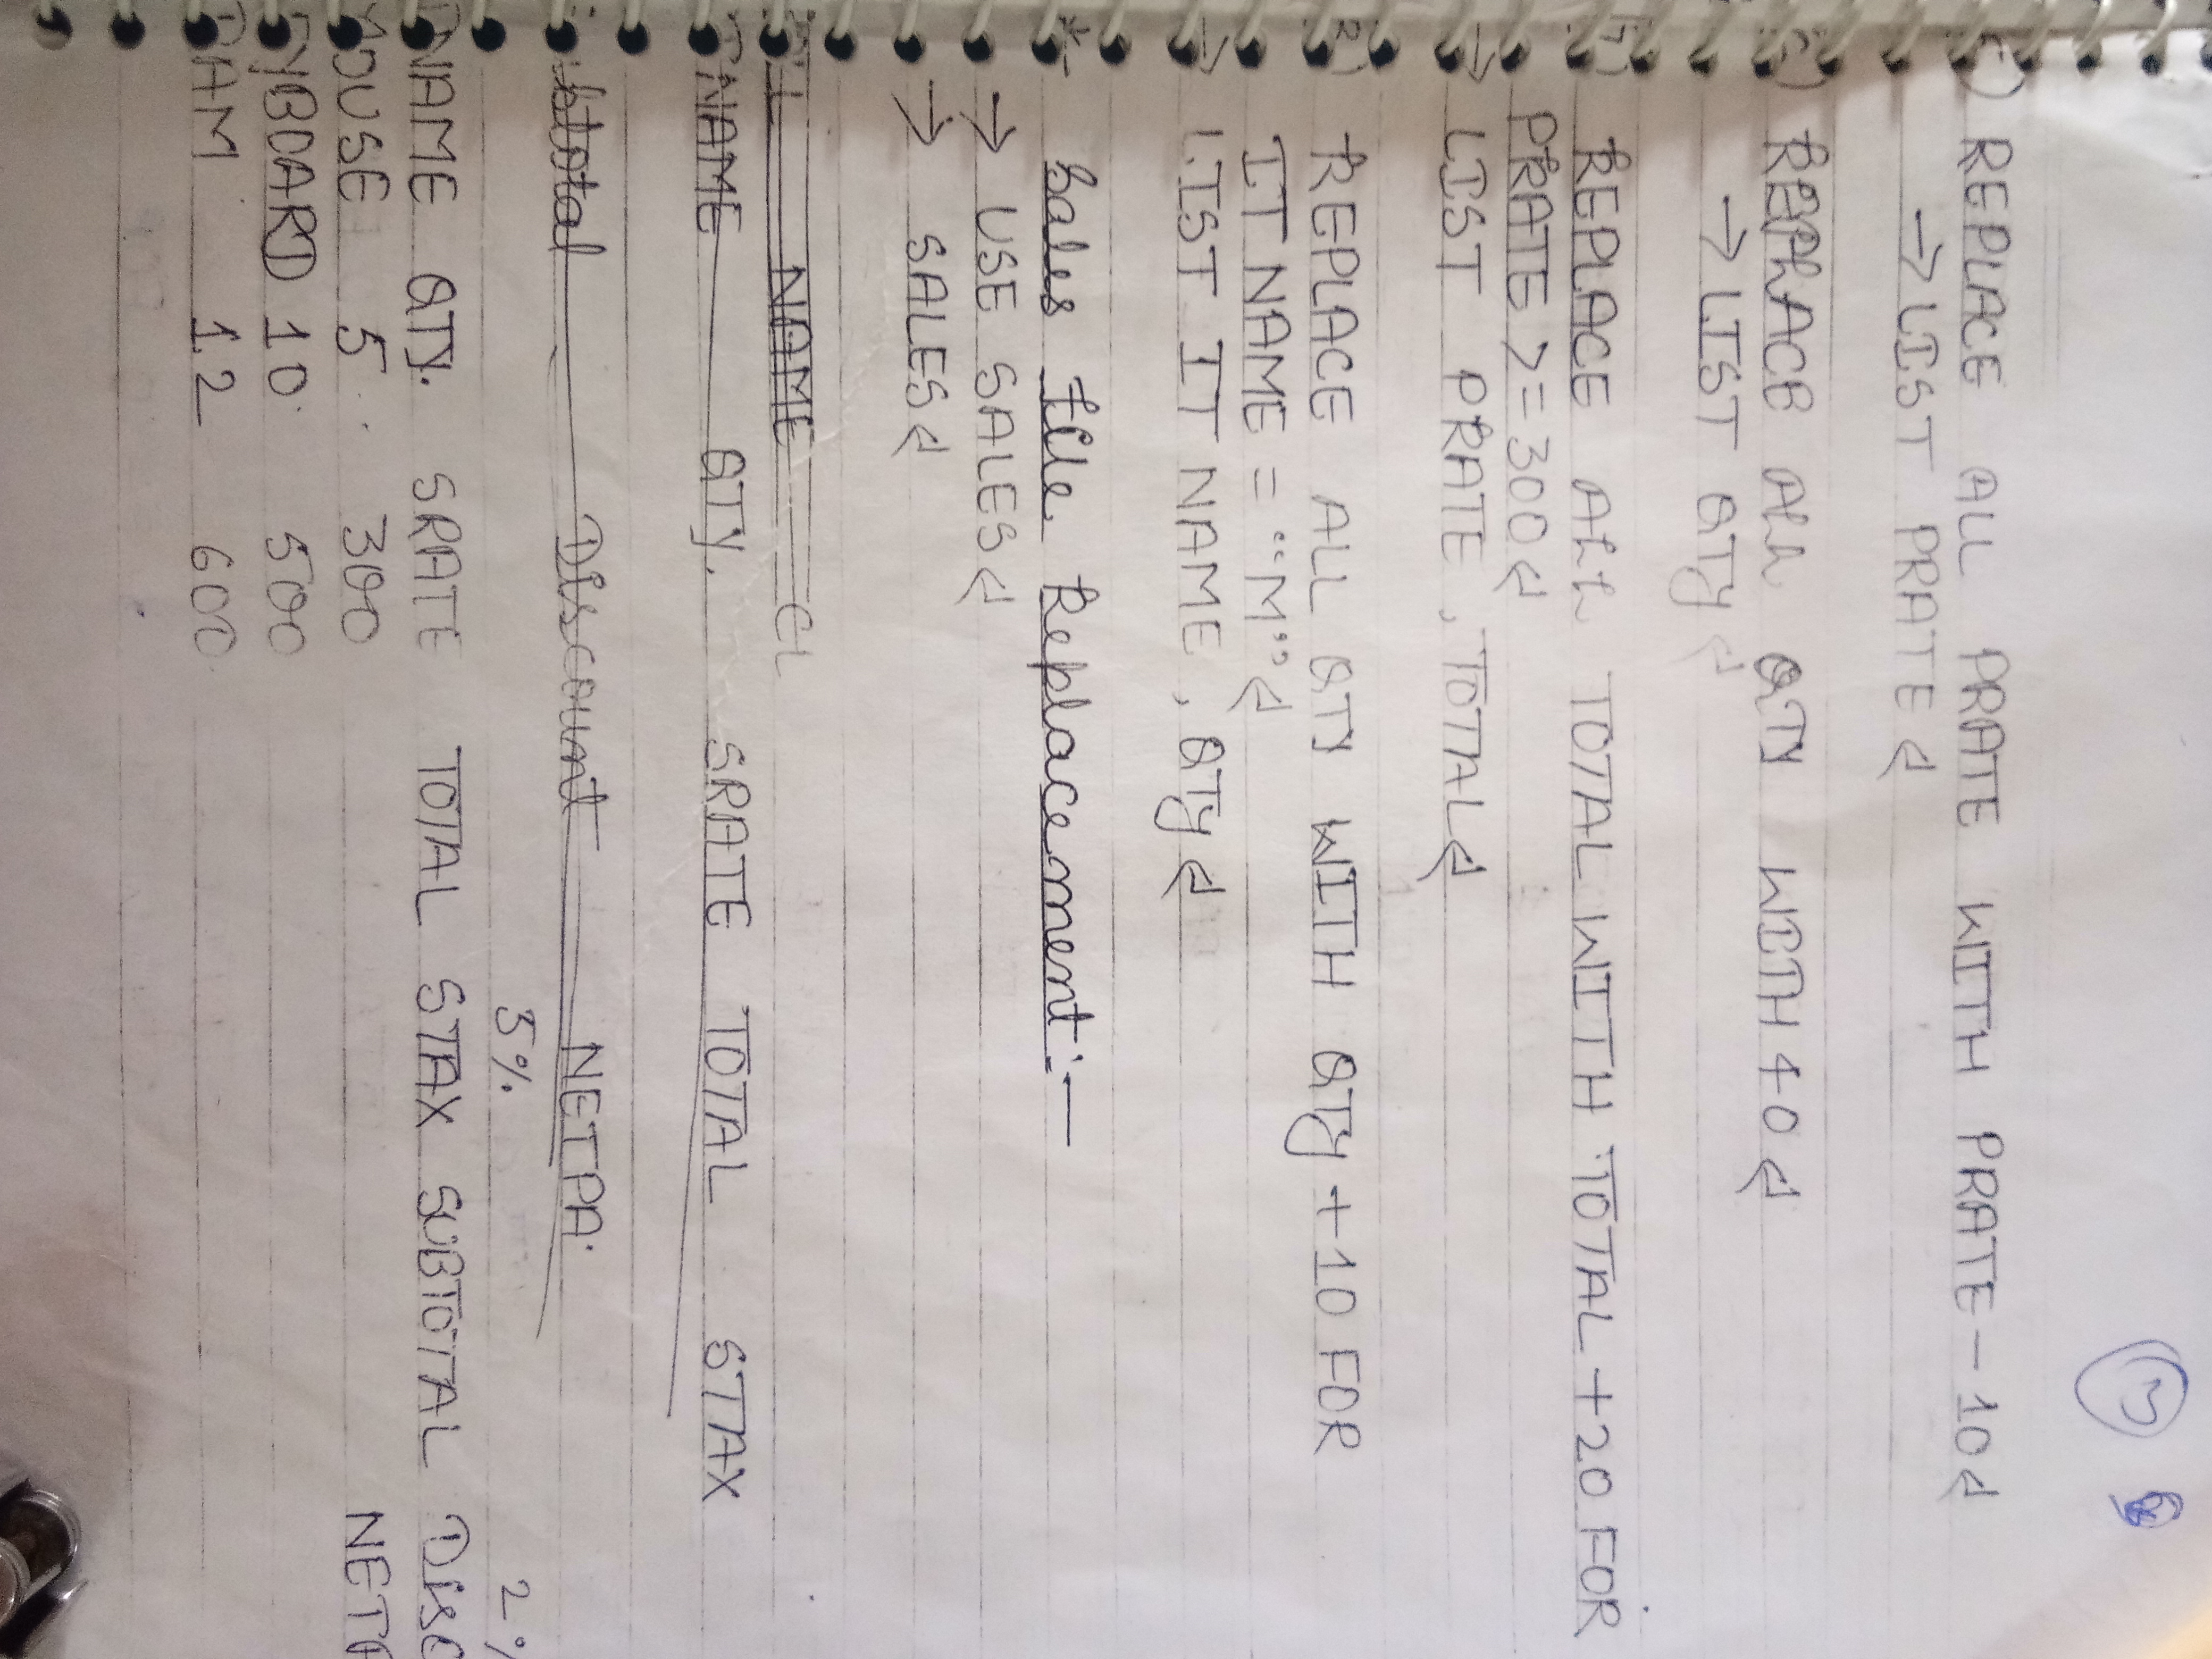 5) REPLACE ALL PRATE WITH PRATE-10↵
→ LIST PRATE↵
6) REPLACE ALL QTY WITH 40↵
→ LIST QTY↵
7) REPLACE ALL TOTAL WITH TOTAL+20 FOR
PRATE >= 300↵
→ LIST PRATE, TOTAL↵
8) REPLACE ALL QTY WITH QTY+10 FOR
ITNAME = "M"↵
→ LIST ITNAME, QTY↵
* Sales file Replacement:—
→ USE SALES↵
→ SALES↵
NAME CL
TNAME QTY. SRATE TOTAL STAX
Subtotal Discount NETPA.
5% 2%
NAME QTY. SRATE TOTAL STAX SUBTOTAL DISC
MOUSE 5 300 NETP
EYBOARD 10 500
RAM 12 600